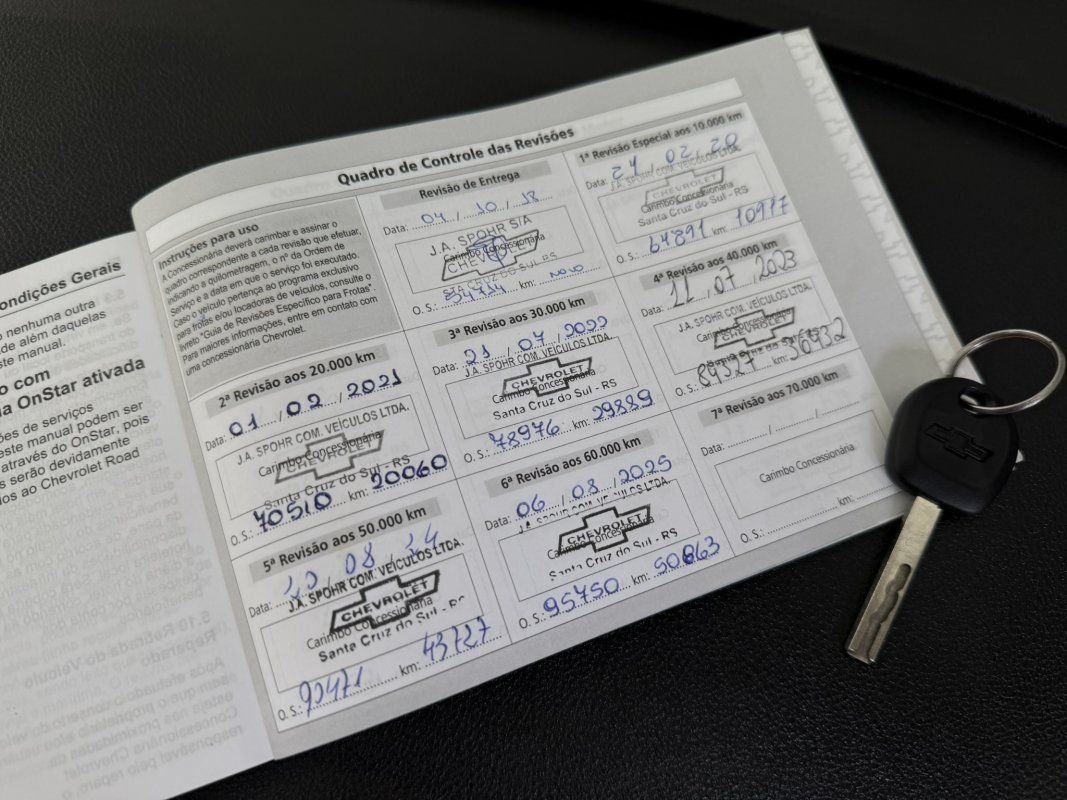 ondições Gerais
o nenhuma outra
de além daquelas
ste manual.
o com
ia OnStar ativada
ões de serviços
este manual podem ser
através do OnStar, pois
s serão devidamente
os ao Chevrolet Road
Quadro de Controle das Revisões
Instruções para uso
A Concessionária deverá carimbar e assinar o
quadro correspondente a cada revisão que efetuar,
indicando a quilometragem, o nº da Ordem de
Serviço e a data em que o serviço foi executado.
Caso o veículo pertença ao programa exclusivo
para frotas e/ou locadoras de veículos, consulte o
livreto "Guia de Revisões Específico para Frotas".
Para maiores informações, entre em contato com
uma concessionária Chevrolet.
Revisão de Entrega
Data: 04 / 10 / 18
J.A. SPOHR S/A
Carimbo Concessionária
CHEVROLET
STA CRUZ DO SUL RS
O.S.: km: NOVO
1ª Revisão Especial aos 10.000 km
Data: 27 / 02 / 20
J.A. SPOHR COM. VEÍCULOS LTDA.
CHEVROLET
Carimbo Concessionária
Santa Cruz do Sul - RS
O.S.: 64891 km: 10977
2ª Revisão aos 20.000 km
Data: 01 / 02 / 2021
J.A. SPOHR COM. VEÍCULOS LTDA.
Carimbo Concessionária
CHEVROLET
Santa Cruz do Sul - RS
O.S.: 70510 km: 20060
3ª Revisão aos 30.000 km
Data: 21 / 07 / 2022
J.A. SPOHR COM. VEÍCULOS LTDA.
CHEVROLET
Carimbo Concessionária
Santa Cruz do Sul - RS
O.S.: 78976 km: 29889
4ª Revisão aos 40.000 km
Data: 11 / 07 / 2023
J.A. SPOHR COM. VEÍCULOS LTDA.
CHEVROLET
Carimbo Concessionária
O.S.: 89327 km: 36932
5ª Revisão aos 50.000 km
Data: / 08 / 24
J.A. SPOHR COM. VEÍCULOS LTDA.
CHEVROLET
Carimbo Concessionária
Santa Cruz do Sul - RS
O.S.: 92471 km: 43727
6ª Revisão aos 60.000 km
Data: 06 / 08 / 2025
J.A. SPOHR COM. VEÍCULOS LTDA.
CHEVROLET
Carimbo Concessionária
Santa Cruz do Sul - RS
O.S.: 95750 km: 50663
7ª Revisão aos 70.000 km
Data: / /
Carimbo Concessionária
O.S.: km: